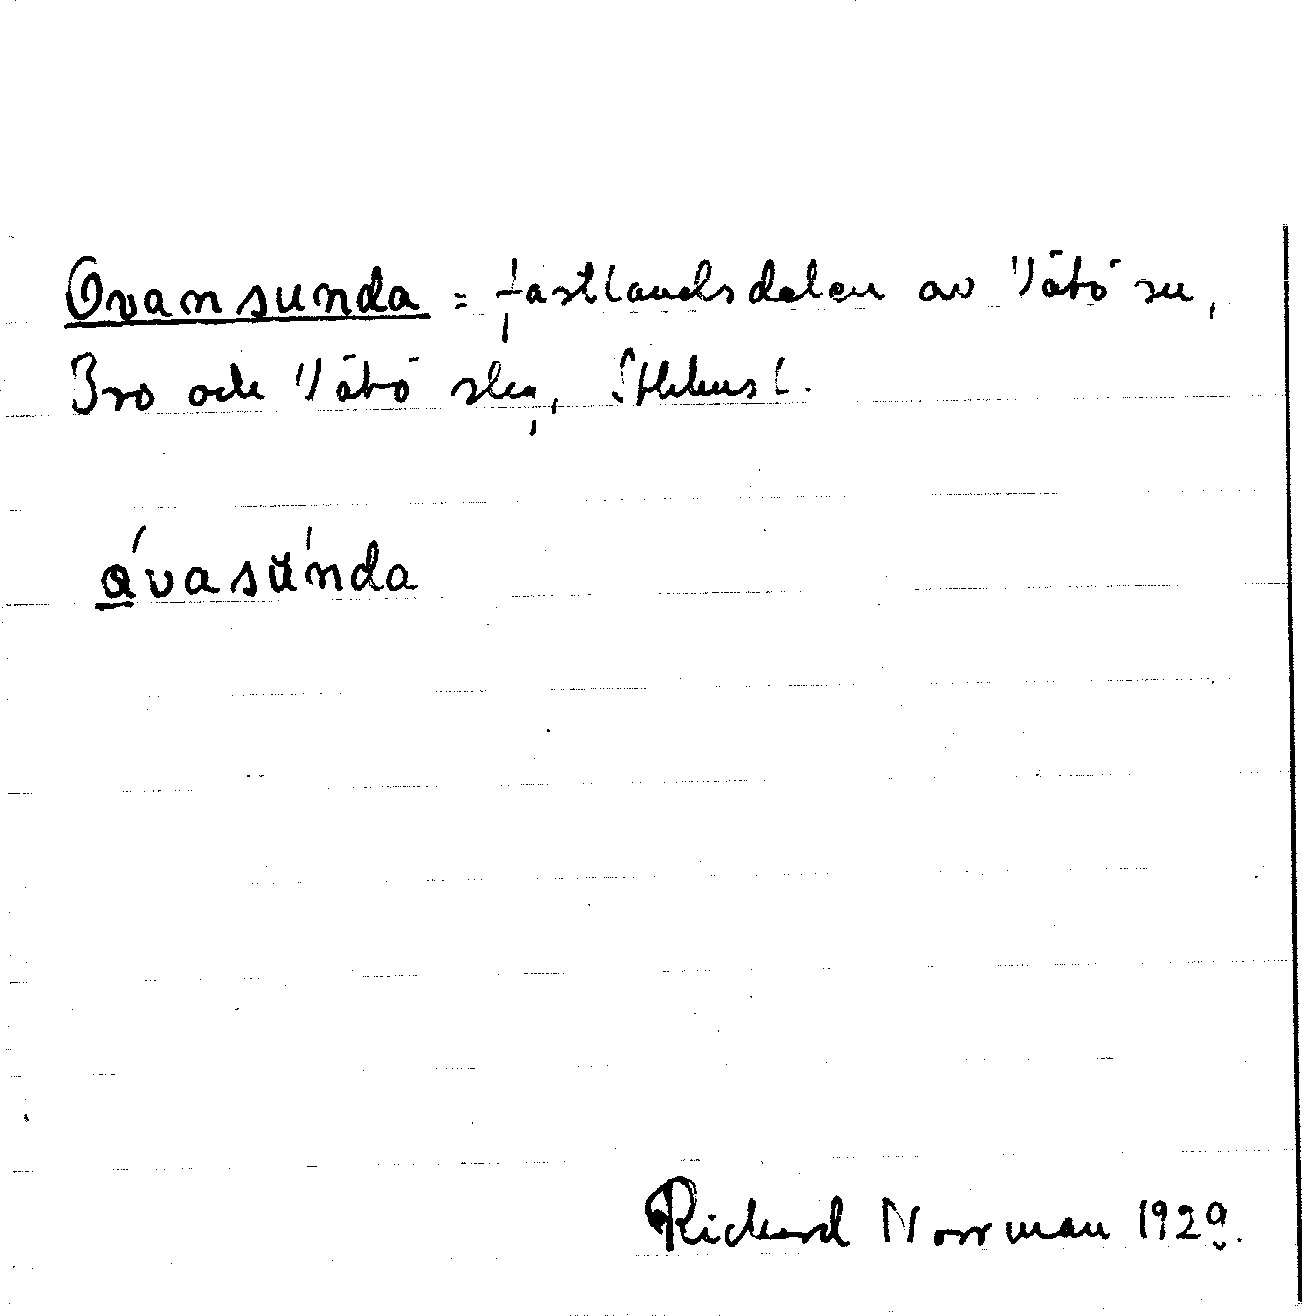 Ovansunda = fastlandsdelen av Vätö sn,
Bro och Vätö skg, Sthlms l.
ávasu̇́nda
Rickard Norrman 1929.